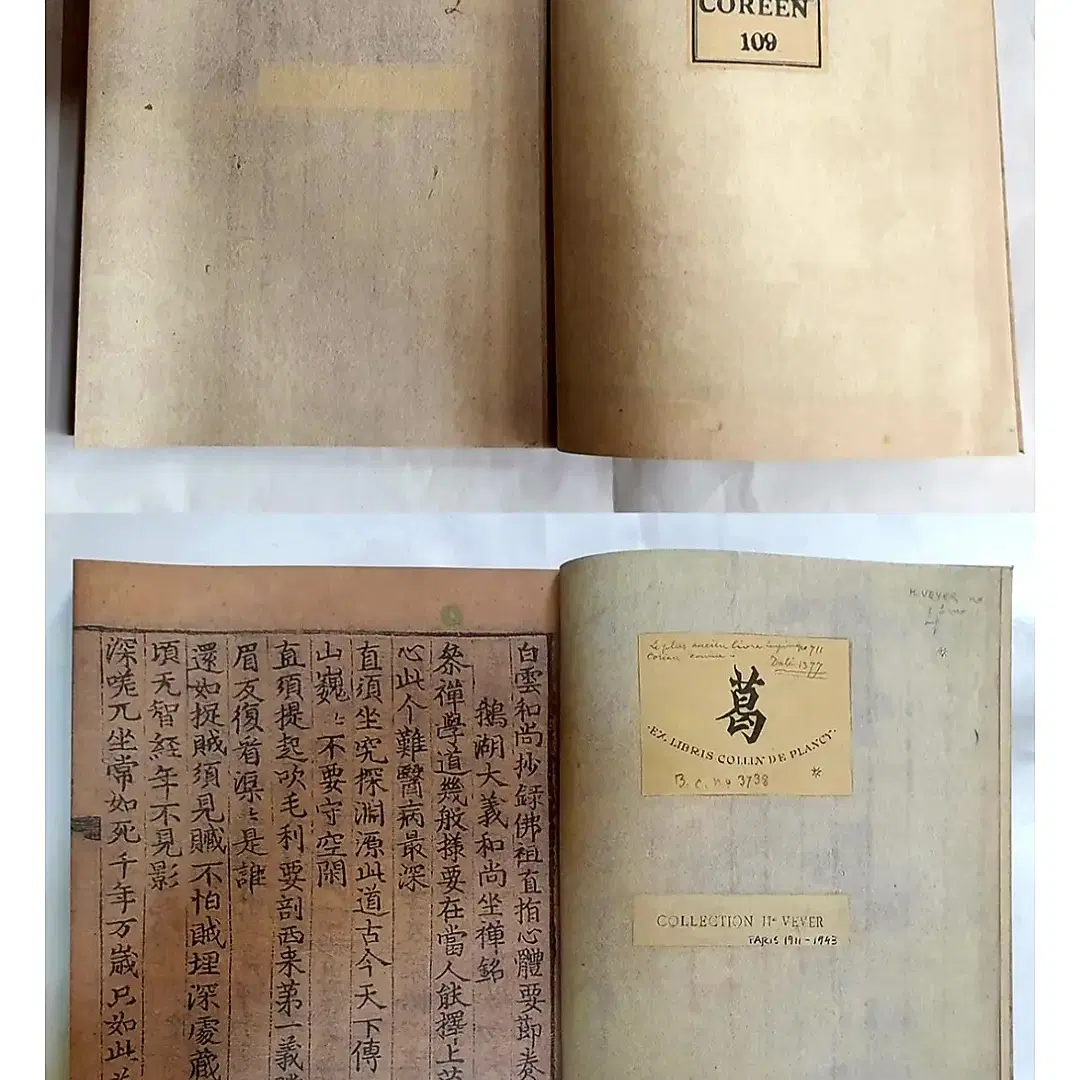 COREEN
109
H. VEVER
Le plus ancien livre
Coréen connu
Daté 1377
葛
EX LIBRIS COLLIN DE PLANCY
B.C. no 3738
COLLECTION Hri VEVER
PARIS 1911-1943
白雲和尚抄録佛祖直指心體要節卷
鵝湖大義和尚坐禪銘
叅禪學道幾般様要在當人能擇上
心此个難醫病最深
直須坐究探淵源此道古今天下傳
山巍〻不要守空閑
直須提起吹毛利要剖西来第一義
眉友復看渠〻是誰
還如捉賊須見贓不怕賊埋深處藏
頃无智経年不見影
深嗟兀坐常如死千年万歳只如此